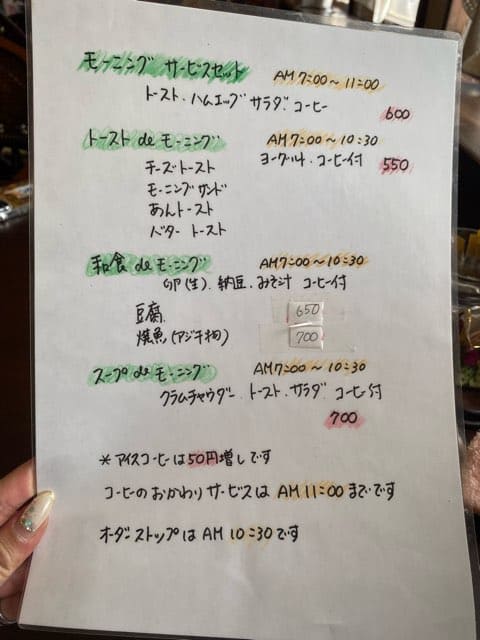 モーニング サービスセット AM 7:00〜11:00
トースト・ハムエッグ サラダ・コーヒー
600
トースト de モーニング AM 7:00〜10:30
ヨーグルト・コーヒー付 550
チーズトースト
モーニングサンド
あんトースト
バタートースト
和食 de モーニング AM 7:00〜10:30
卵(生)・納豆・みそ汁 コーヒー付
豆腐 650
焼魚(アジ干物) 700
スープ de モーニング AM 7:00〜10:30
クラムチャウダー・トースト・サラダ コーヒー付
700
*アイスコーヒーは50円増しです
コーヒーのおかわりサービスは AM 11:00 までです
オーダーストップは AM 10:30 です